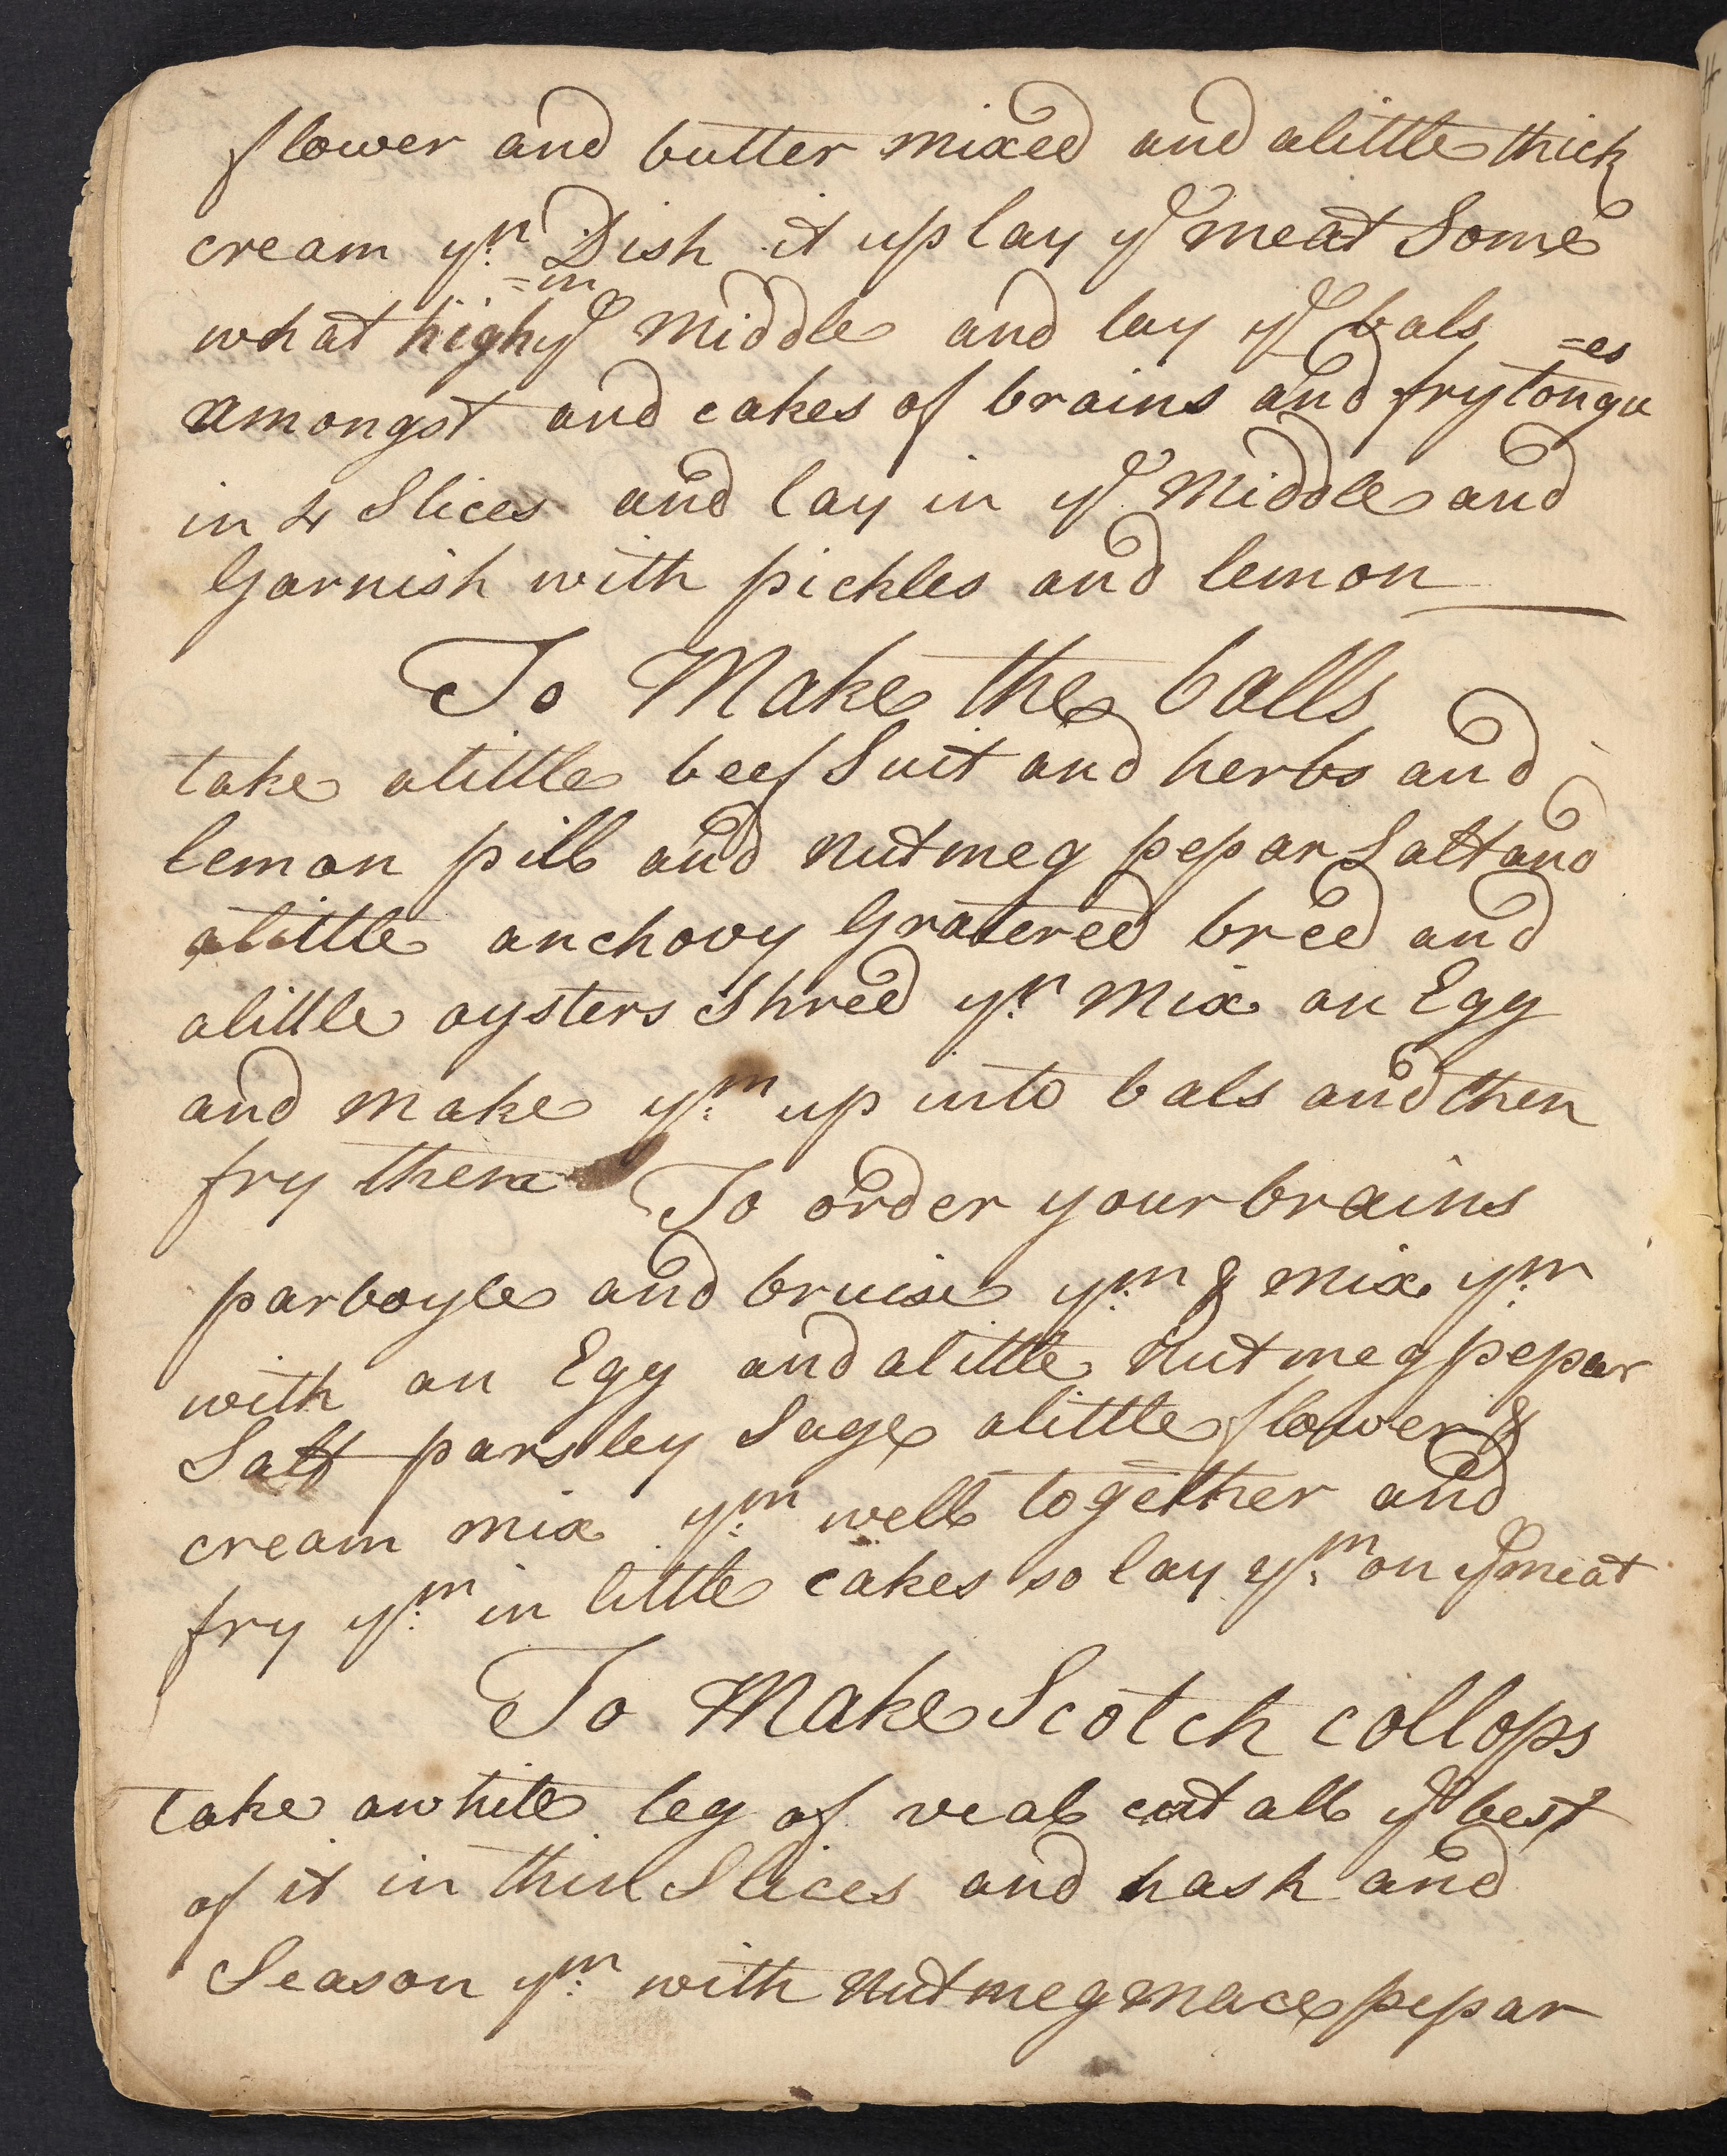 flower and butter mixed and alittle thick
cream yn Dish it up lay ye meat Some
=in
what high ye Middle and lay ye bals
=es
amongst and cakes of brains and fry tongu
in 4 Slices and lay in ye Middle and
Garnish with pickles and lemon
To Make the balls
take alittle beef Suit and herbs and
lemon pill and nutmeg pepar Salt and
alittle anchovy Gratered bred and
alittle oysters Shred yn Mix an Egg
and make ym up into bals and then
fry them
To order your brains
parboyle and bruise ym & mix ym
with an Egg and alittle Nutmeg pepar
Salt parsley Sage alittle flower &
cream mix ym well together and
fry ym in little cakes so lay ym on ye meat
To Make Scotch collops
take awhite leg of veal cut all ye best
of it in thin Slices and hash and
Season ym with Nutmeg mace pepar